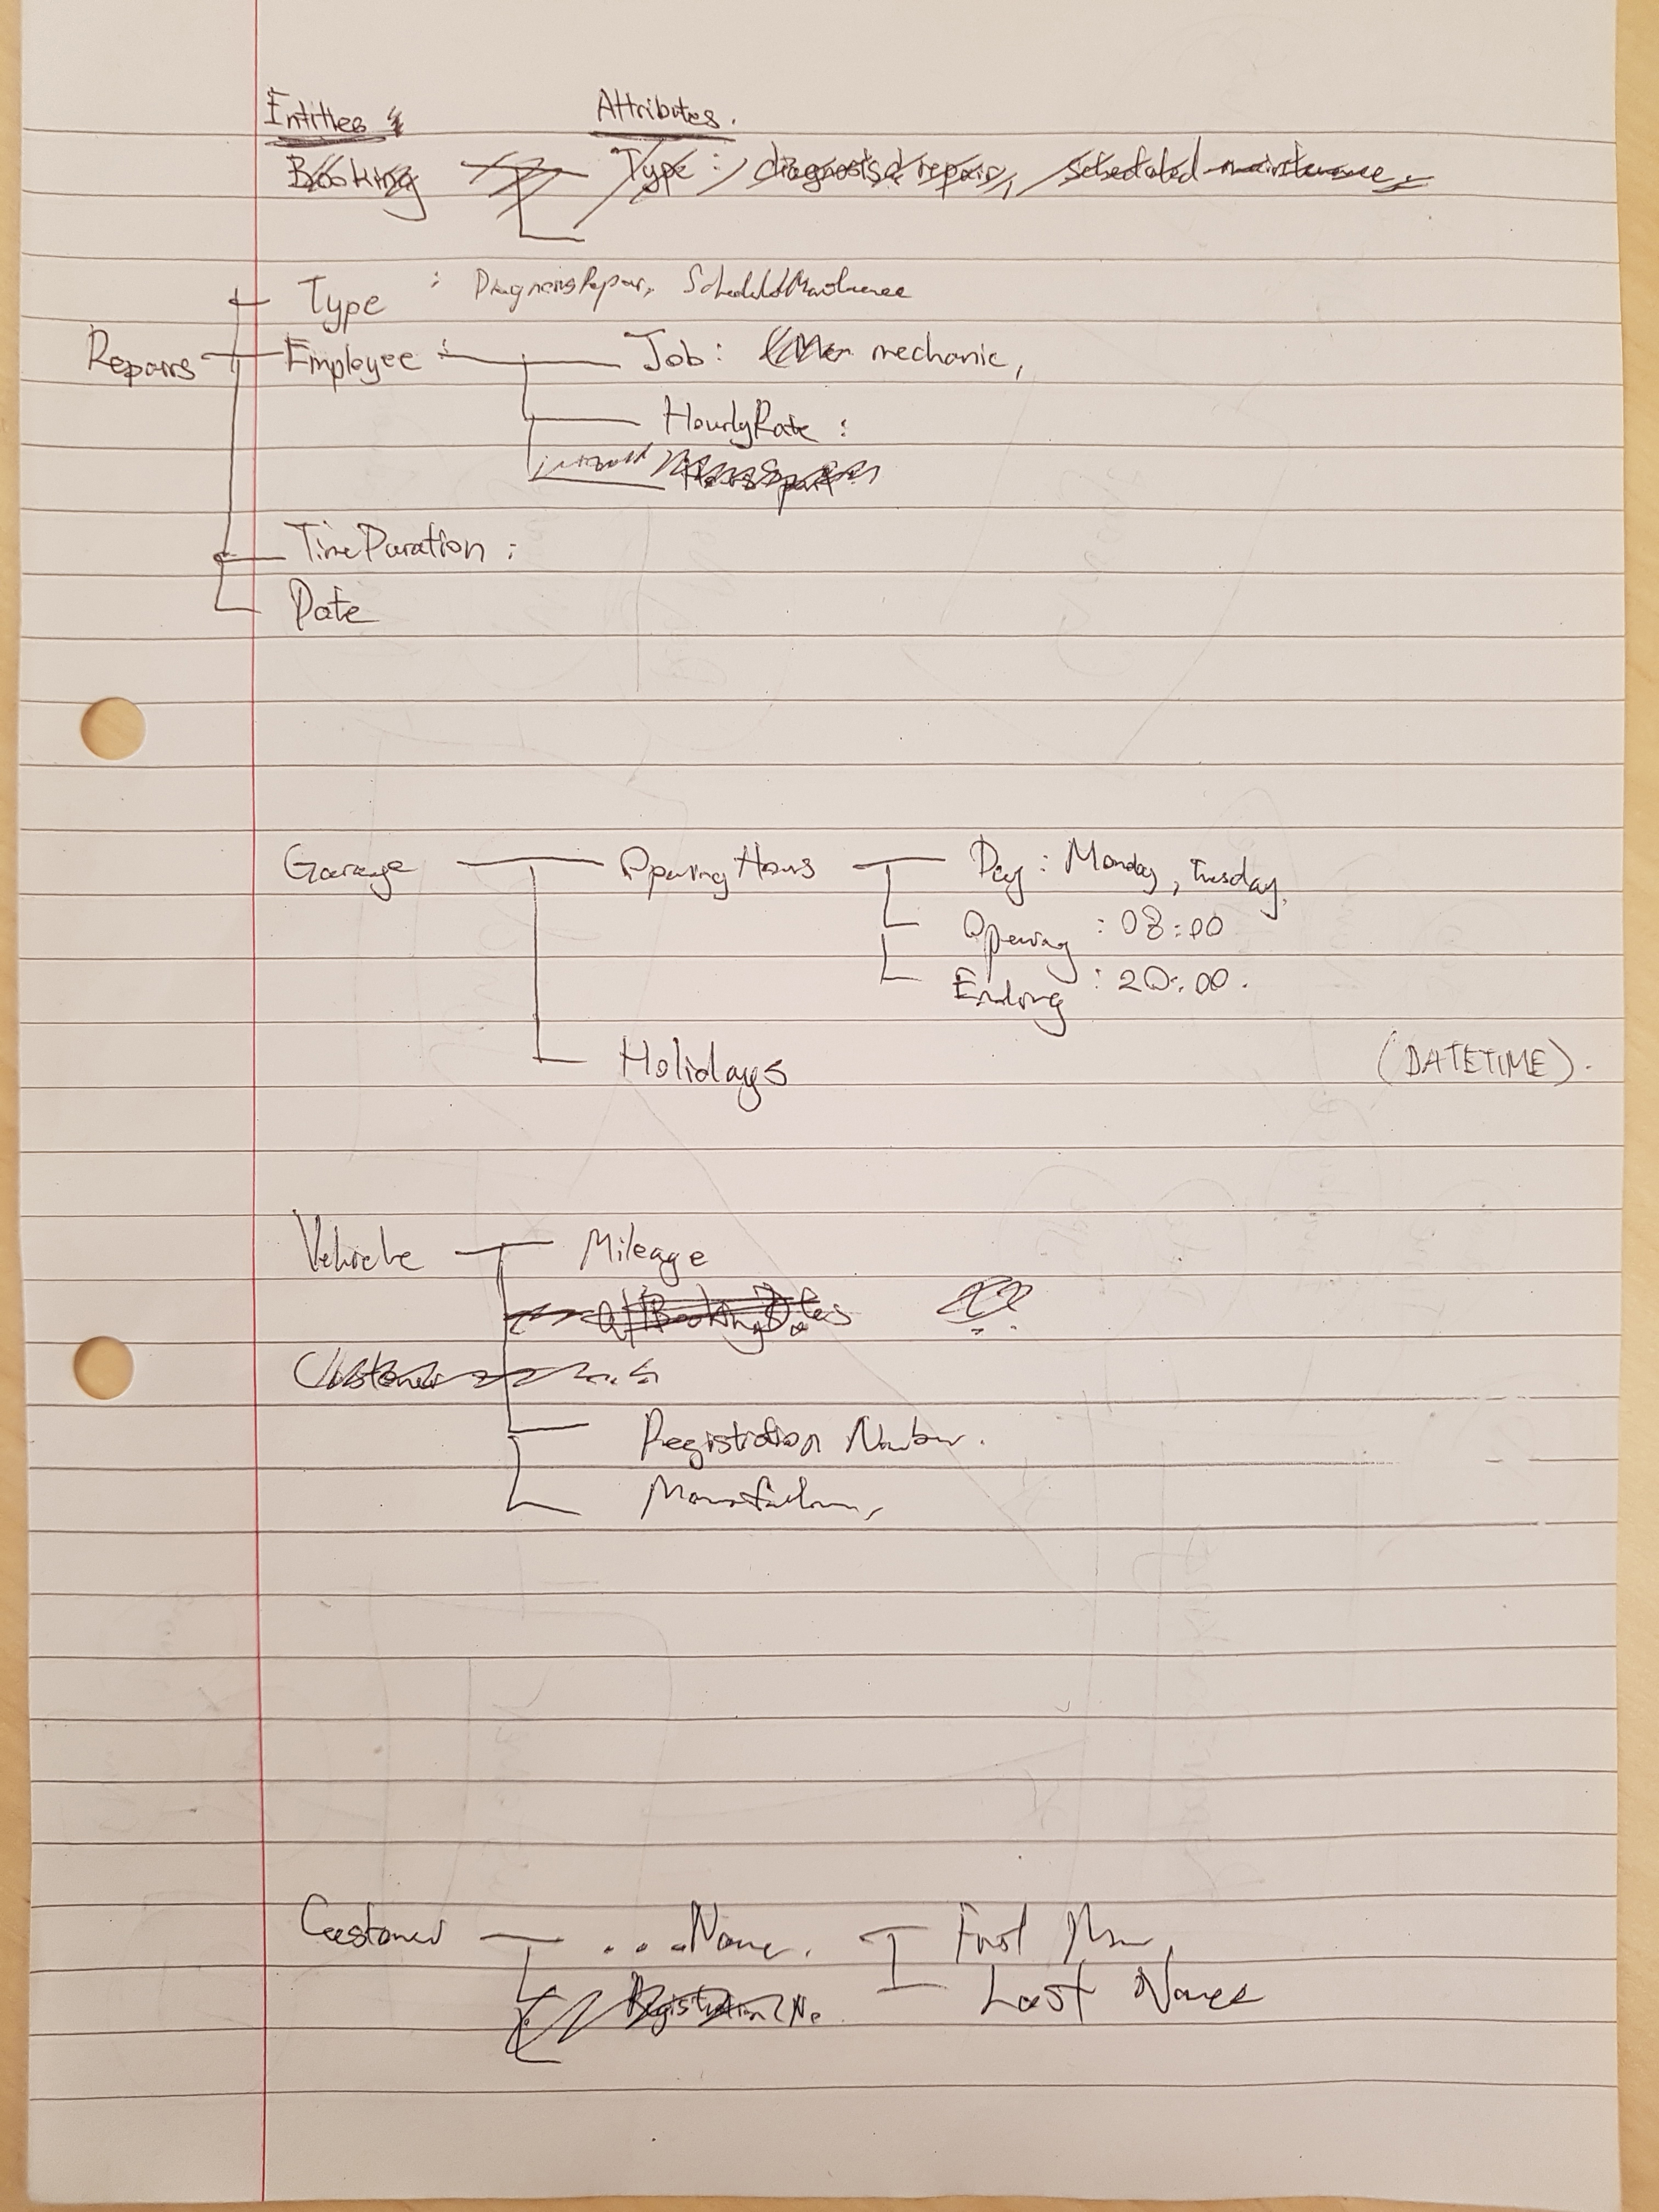 Entities Attributes.
Booking Type : diagnosis & repair, scheduled maintenance
Type : DiagnosisRepair, ScheduledMaintenance
Repairs Employee : Job : mechanic,
HourlyRate :
TimeDuration :
Date
Garage OpeningHours Day : Monday, Tuesday,
Opening : 08:00
Ending : 20:00.
Holidays (DATETIME).
Vehicle Mileage
Customer
Registration Number.
Customer ...Name. First
Registration No
Last Name